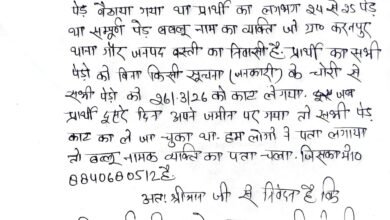 पेड़ बैठाया गया था प्रार्थी का लगभग 24 से 25 पेड़
था सम्पूर्ण पेड़ बबलू नाम का व्यक्ति जो ग्रा०
थाना गौर जनपद बस्ती का निवासी है प्रार्थी का सभी
पेड़ो को बिना किसी सूचना (जानकारी) के चोरी से
सभी पेड़ो को 26/3/26 को काट ले गया। जब
प्रार्थी दूसरे दिन अपने जमीन पर गया तो सभी पेड़
काट का ले जा चुका था - हम लोगो ने पता लगाया
तो बब्लू नामक व्यक्ति का पता चला। जिसका मो०
8840680512 है
अतः श्रीमान जी से निवेदन है कि